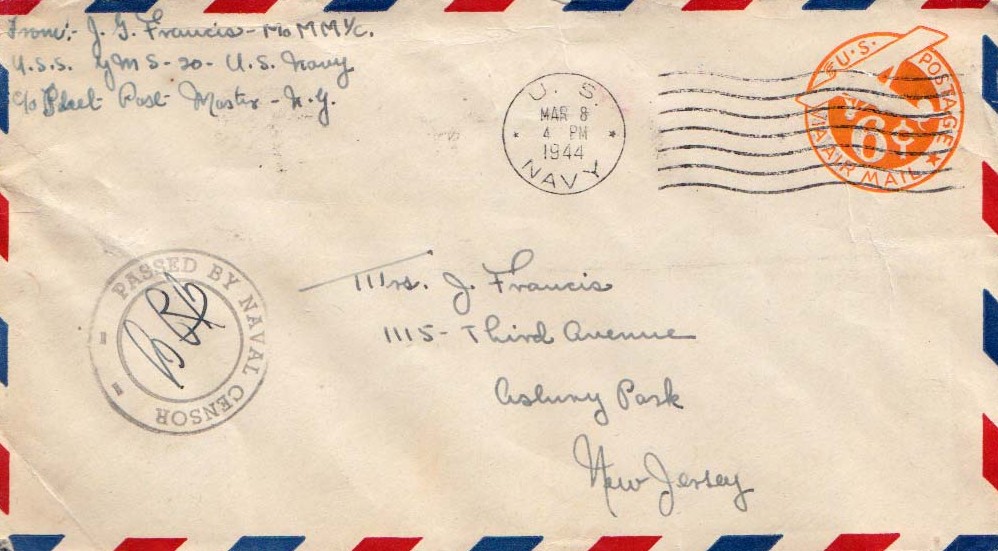 From:- J. G. Francis - MoMM 1/c.
U.S.S. YMS-20- U.S. Navy
c/o Fleet Post Master - N.Y.
U. S.
MAR 8
4 PM
1944
NAVY
U.S. POSTAGE
6¢
VIA AIR MAIL
PASSED BY NAVAL CENSOR
Mrs. J. Francis
1115- Third Avenue
Asbury Park
New Jersey